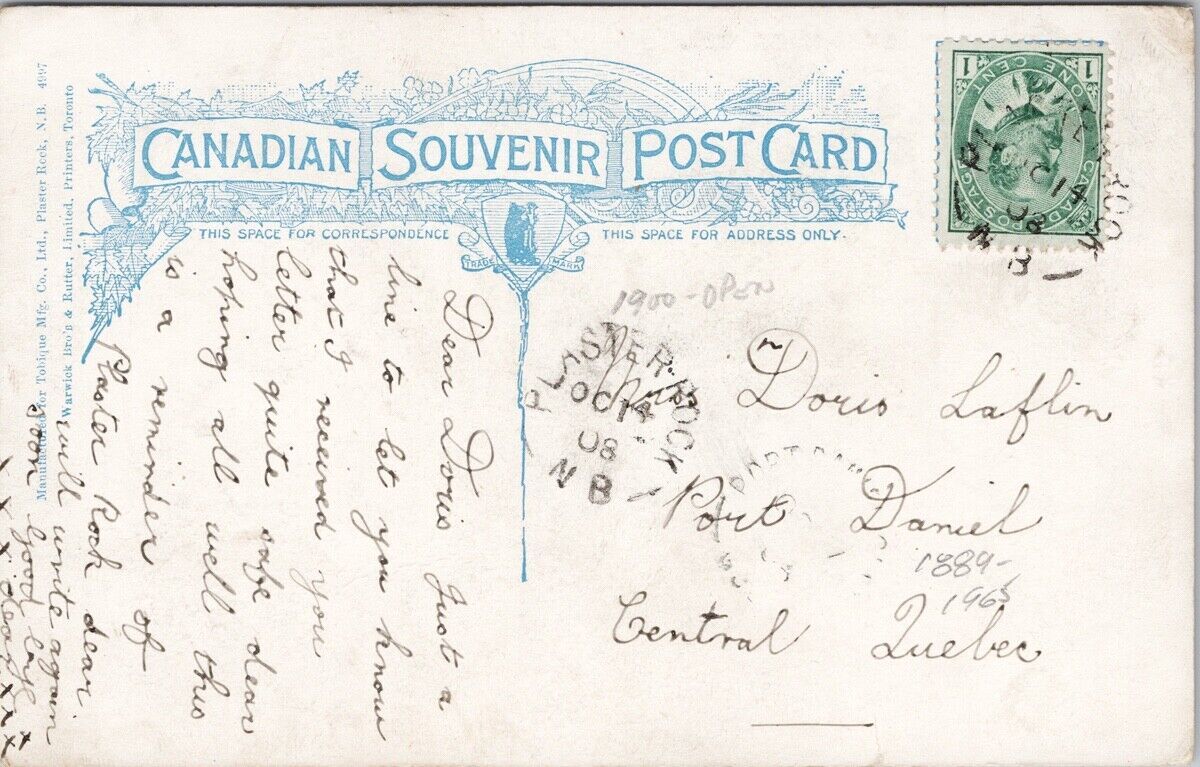 CANADIAN SOUVENIR POST CARD
THIS SPACE FOR CORRESPONDENCE
THIS SPACE FOR ADDRESS ONLY.
TRADE MARK
Manufactured for Tobique Mfg. Co., Ltd., Plaster Rock, N.B. 4997
Warwick Bro's & Rutter, Limited, Printers, Toronto
ONE CENT
1 1
CANADA POSTAGE
PLASTER ROCK
OC 14
08
N B
Dear Doris Just a
line to let you know
that I received you
letter quite safe dear
hoping all well this
is a reminder of
Plaster Rock dear
will write again
soon Good bye
x x dear x x x
1900 - OPEN
PLASTER ROCK
OC 14
08
N B
Miss Doris Laflin
PORT DANIEL
Port Daniel
1889-
1965
Central Quebec